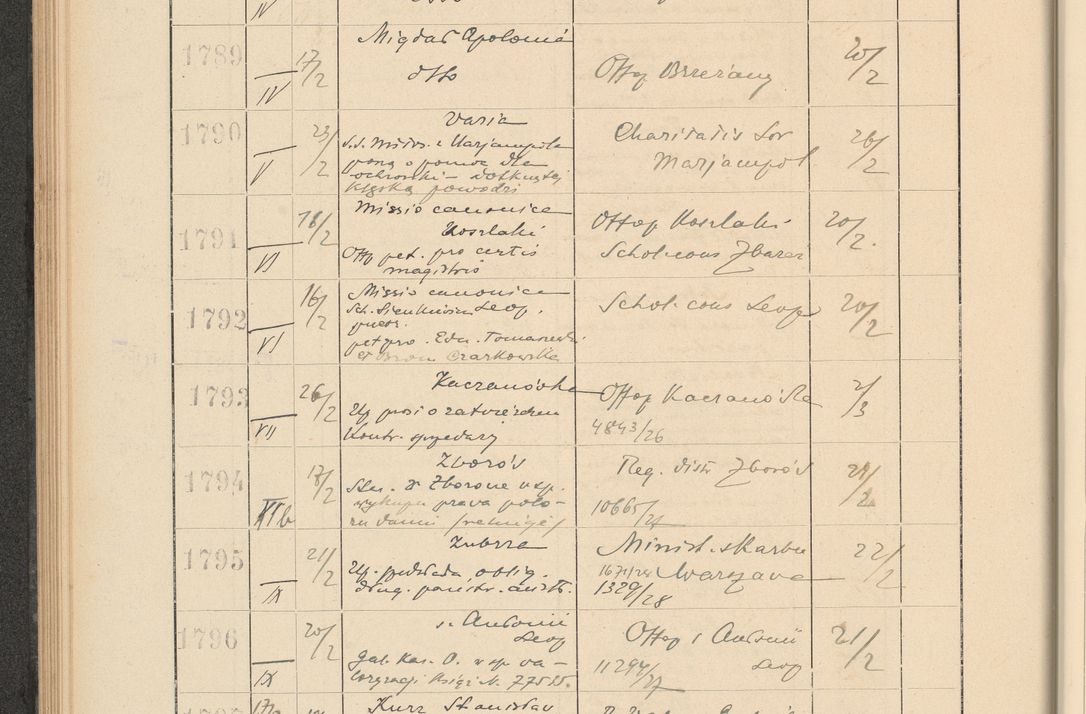 IV
1789 IV 17/2 Migdał Apolonia
dtto Offop Brzeżany 20/2
1790 V 23/2 Varia
S.S. Miłos. z Marjampola
proszą o pomoc dla
ochronki – dotkniętej
klęską powodzi
Charitatis Sor
Marjampol 26/2
1791 VI 18/2 Missio canonica
Koszlaki
Offp pet. pro certis
magistris
Offop Koszlaki
Schol. cons Zbaraz 20/2.
1792 VI 16/2 Missio canonica
Sch. Sienkiewicza Leop.
puer.
pet pro. Edu. Tomaszewski
et Bron Czarkowska
Schol. cons Leop 20/2
1793 VII 26/2 Kaczanówka
Up prosi o zatwierdzen
Kontr. sprzedaży
Offop Kaczanówka
4843/26 2/3
1794 XIb 17/2 Zborów
Star. w Zborowie w sp.
wykupu prawa
Reg. distr Zborów
10665/27
1795 IX 21/2 Zubrza
Up. przedkłada oblig.
dług. państw. austr.
Minist. skarbu
Warszawa
1329/28 22/2
1796 IX 20/2 s. Antonii
Leop
Offop s Antonii
Leop
11294/27 21/2
Kurz Stanisław